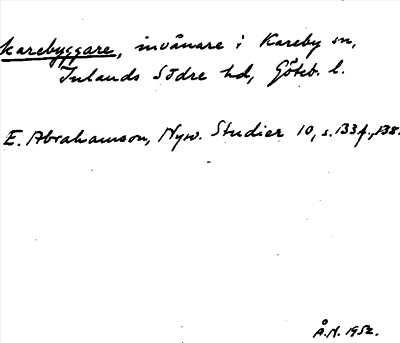 karebyggare, invånare i Kareby sn,
Inlands Södre hd, Göteb. l.
E. Abrahamson, Nysv. Studier 10, s. 133 f., 138.
Å.H. 1952.